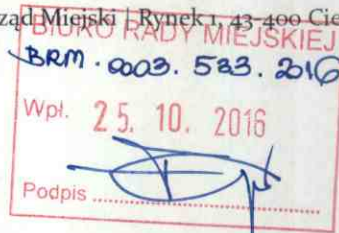 ząd Miejski | Rynek 1, 43-400 Cie
BIURO RADY MIEJSKIEJ
BRM. 0003. 533. 2016
Wpł. 25. 10. 2016
Podpis ..............................